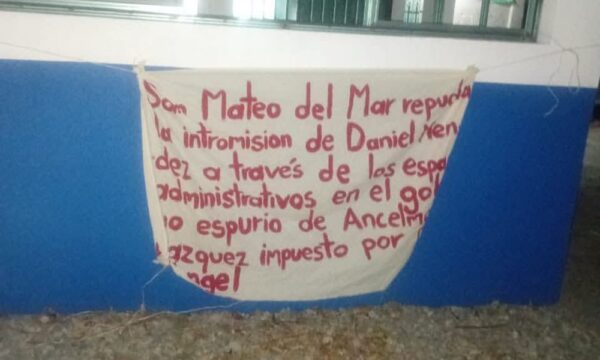 San Mateo del Mar repudia
la intromision de Daniel Men
dez a través de los espa
administrativos en el gob
no espurio de Ancelm
azquez impuesto por
ngel